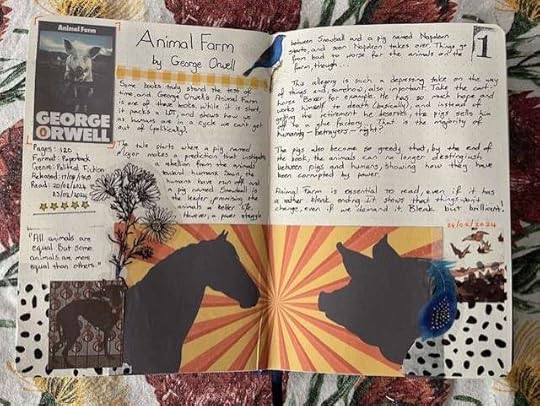 Animal Farm
GEORGE
ORWELL
Pages: 120
Format: Paperback
Genre: Political Fiction
Released: 17/08/1945
Read: 20/02/2024
23/02/2024
"All animals are
equal. But some
animals are more
equal than others."
Animal Farm
by George Orwell
Some books truly stand the test of
time, and George Orwell's Animal Farm
is one of those books. While it's short,
it packs a LOT, and shows how we
as humans are in a cycle we can't get
out of (politically).
The tale starts when a pig named
Major makes a prediction that instigates
a rebellion from the
toward humans. Soon, the
have run off and
a pig named Snowball
the leader promising the
animals a better life.
However, a power struggle
between Snowball and a pig named Napoleon
starts, and soon Napoleon takes over. Things go
from bad to worse for the animals on the
farm though.
1
This allegory is such a depressing take on the way
of things and, somehow, also important. Take the cart-
horse Boxer for example. He has so much hope and
works himself to death (basically) and instead of
getting the retirement he deserves, the pigs sell him
to a glue factory. That is the majority of
humanity - betrayers - right?
The pigs also become so greedy that, by the end of
the book, the animals can no longer distinguish
between pigs and humans, showing how they have
been corrupted by power.
Animal Farm is essential to read, even if it has
a rather bleak ending. it shows that things don't
change, even if we demand it. Bleak but brilliant.
24/02/2024